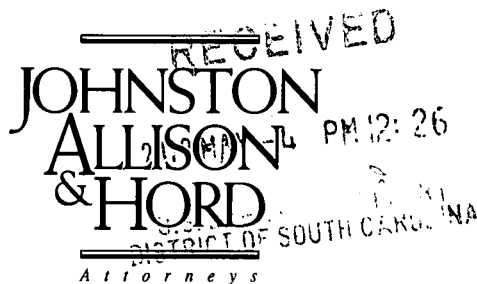 RECEIVED
JOHNSTON
ALLISON
& HORD
PM 12: 26
DISTRICT OF SOUTH CAROLINA
Attorneys